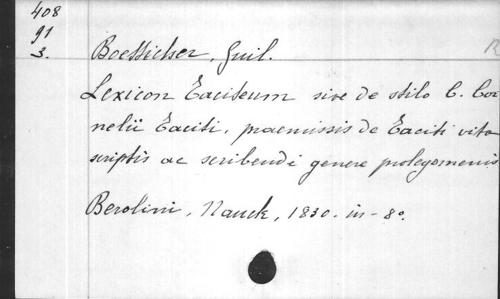 408
91
3.
Boetticher, Guil.
R
Lexicon Taciteum sive de stilo C. Cor-
nelii Taciti, praemissis de Taciti vita
scriptis ac scribendi genere prolegomenis
Berolini, Nauck, 1830. in-8º.